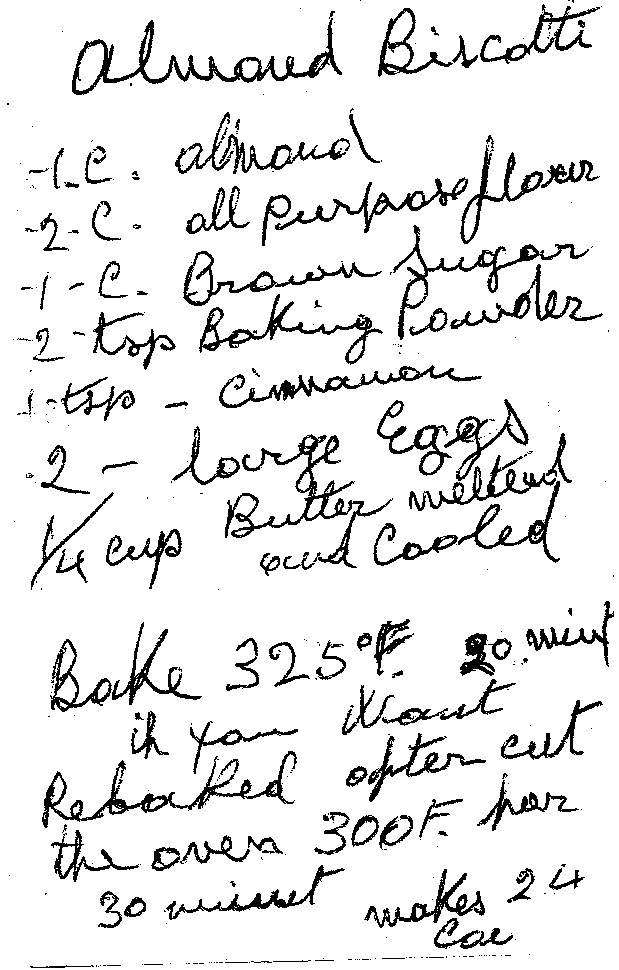 Almond Biscotti
-1-C. almond
-2-C. all Purpose flour
-1-C. Brown Sugar
-2-tsp Baking Powder
1-tsp - Cinnamon
.2 - large Eggs
1/4 cup Butter meltend
and Cooled
Bake 325°F. 20 mint
if you Want
Rebaked after cut
the oven 300F. for
30 minuet makes 24